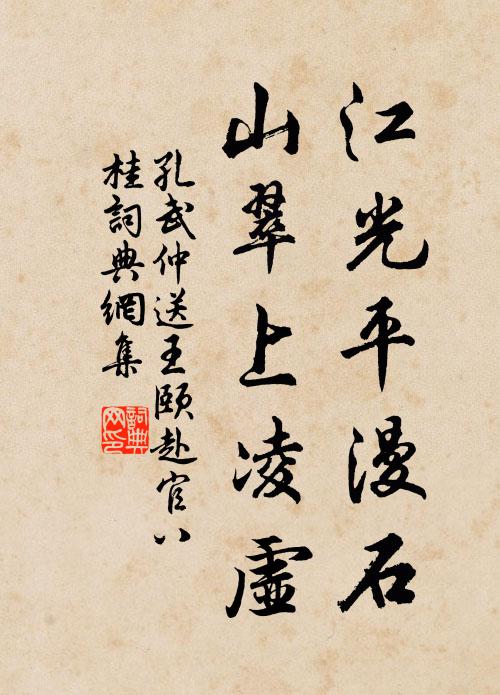 江光平漫石
山翠上凌虛
孔武仲送王頤赴官八
桂詞典網集
詞典網印